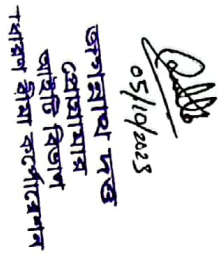 05/10/2023
জগন্নাথ দত্ত
প্রোগ্রামার
আইটি বিভাগ
সাধারণ বীমা কর্পোরেশন